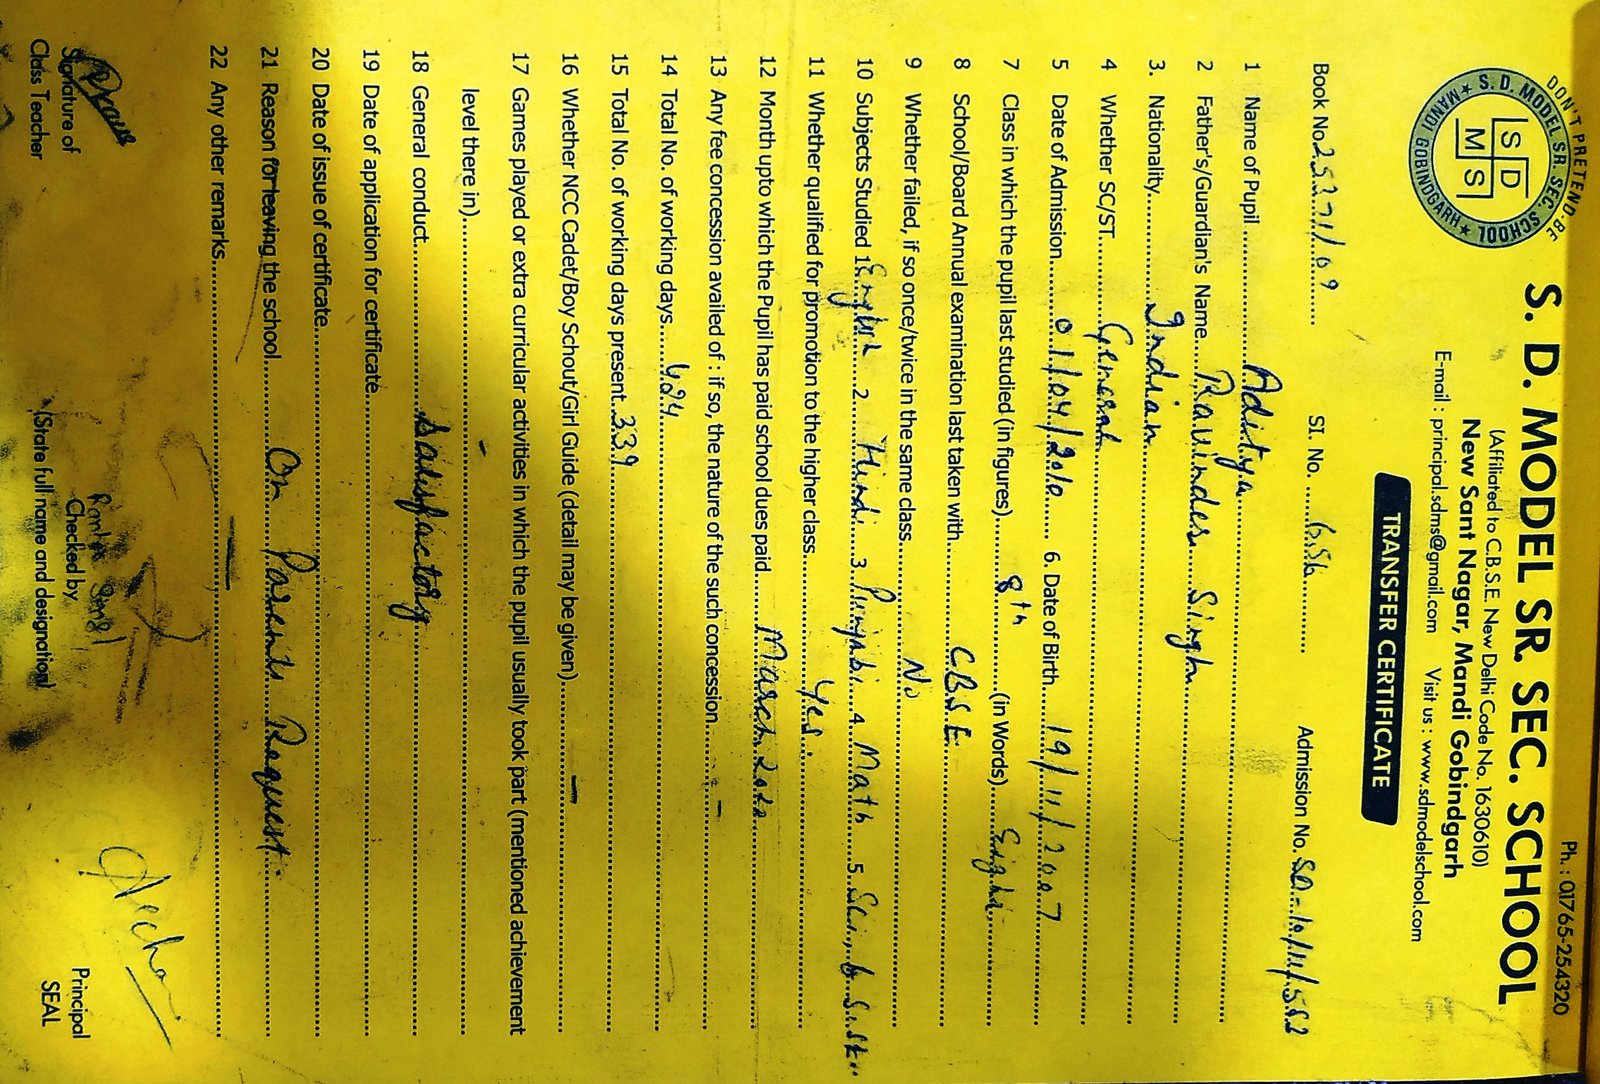 Ph.: 01765-254320
DON'T PRETEND-BE
S. D. MODEL SR. SEC. SCHOOL
MANDI GOBINDGARH
S D M S
S. D. MODEL SR. SEC. SCHOOL
(Affiliated to C.B.S.E. New Delhi Code No. 1630610)
New Sant Nagar, Mandi Gobindgarh
E-mail : principal.sdms@gmail.com Visit us : www.sdmodelschool.com
TRANSFER CERTIFICATE
Book No. 25371/09 Sl. No. 656 Admission No. SD-10/11/552
1 Name of Pupil Aditya
2 Father's/Guardian's Name Ravinder Singh
3. Nationality Indian
4 Whether SC/ST General
5 Date of Admission 01/04/2010 6. Date of Birth 19/11/2007
7 Class in which the pupil last studied (in figures) 8th (in Words) Eight
8 School/Board Annual examination last taken with C.B.S.E.
9 Whether failed, if so once/twice in the same class No
10 Subjects Studied 1. English 2. Hindi 3. Punjabi 4 Math 5 Sci, 6. S.St
11 Whether qualified for promotion to the higher class Yes.
12 Month upto which the Pupil has paid school dues paid March 2022
13 Any fee concession availed of : if so, the nature of the such concession -
14 Total No. of working days 424
15 Total No. of working days present 339
16 Whether NCC Cadet/Boy Schout/Girl Guide (detail may be given) -
17 Games played or extra curricular activities in which the pupil usually took part (mentioned achievement
level there in) -
18 General conduct Satisfactory
19 Date of application for certificate
20 Date of issue of certificate
21 Reason for leaving the school On Parents Request.
22 Any other remarks —
Signature of
Class Teacher
Checked by
(State full name and designation)
Principal
SEAL